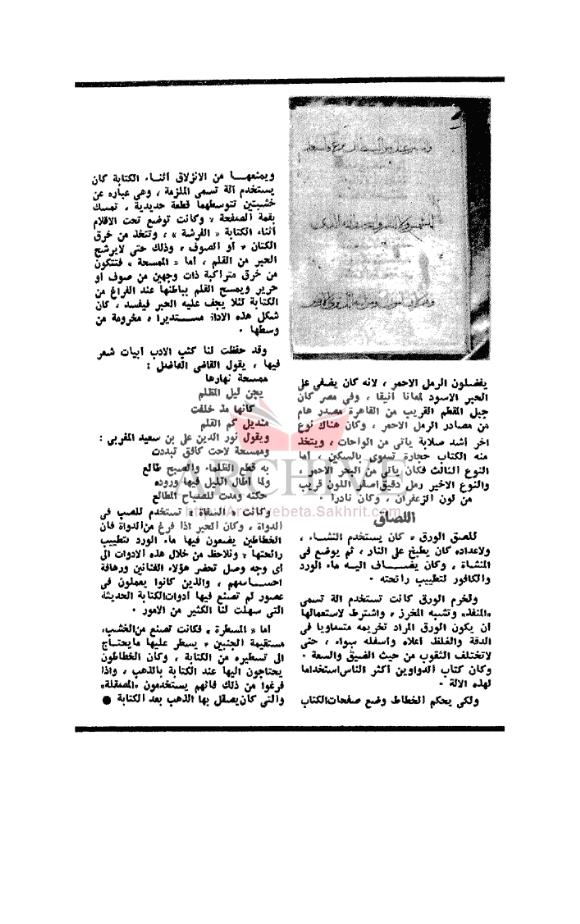 يفضلون الرمل الاحمر ، لانه كان يضفى على
الحبر الاسود لمعانا أنيقا ، وفى مصر كان
جبل المقطم القريب من القاهرة مصدر هام
من مصادر الرمل الاحمر ، وكان هناك نوع
اخر أشد صلابة يأتى من الواحات ، ويتخذ
منه الكتاب حجارة تسوى بالسكين ، اما
النوع الثالث فكان يأتى من البحر الاحمر ،
والنوع الاخير رمل دقيق اصفر اللون قريب
من لون الزعفران ، وكان نادرا ٠
اللصاق
للصق الورق ، كان يستخدم النشاء ،
ولاعداده كان يطبخ على النار ، ثم يوضع فى
المنشاة ، وكان يضاف اليه ماء الورد
والكافور لتطييب رائحته ٠
ولخرم الورق كانت تستخدم الة تسمى
«المنفذ» وتشبه المخرز ، واشترط لاستعمالها
ان يكون الورق المراد تخريمه متساويا فى
الدقة والغلظ اعلاه واسفله سواء ، حتى
لاتختلف الثقوب من حيث الضيق والسعة ٠
وكان كتاب الدواوين أكثر الناس استخداما
لهذه الالة ٠
ولكى يحكم الخطاط وضع صفحات الكتاب
ويمنعها من الانزلاق أثناء الكتابة كان
يستخدم آلة تسمى الملزمة ، وهى عباره عن
خشبتين تتوسطهما قطعة حديدية ، تمسك
بقمة الصفحة ، وكانت توضع تحت الاقلام
أثناء الكتابة « الفرشة » ، وتتخذ من خرق
الكتان ، أو الصوف ، وذلك حتى لايرشح
الحبر من القلم ، اما « الممسحة » فتتكون
من خرق متراكبة ذات وجهين من صوف أو
حرير ويمسح القلم بباطنها عند الفراغ من
الكتابة لئلا يجف عليه الحبر فيفسد ، كان
شكل هذه الاداة مستديرا ، مخرومة من
وسطها ٠
وقد حفظت لنا كتب الادب أبيات شعر
فيها ، يقول القاضى الفاضل :
ممسحة نهارها
يجن ليل الظلم
كأنها مذ خلقت
منديل كم القلم
ويقول نور الدين على بن سعيد المغربى :
وممسحة لاحت كأفق تبددت
به قطع الظلماء والصبح طالع
ولما أطال الليل فيها وروده
حكته ومدت للصباح المطالع
وكانت « السقاة » تستخدم للصب فى
الدواة ، وكان الحبر اذا فرغ من الدواة فان
الخطاطين يضعون فيها ماء الورد لتطييب
رائحتها ، ونلاحظ من خلال هذه الادوات الى
أى وجه وصل تحضر هؤلاء الفنانين ورهافة
احساسهم ، والذين كانوا يعملون فى
عصور لم تصنع فيها أدوات الكتابة الحديثة
التى سهلت لنا الكثير من الامور ٠
اما « المسطرة » فكانت تصنع من الخشب،
مستقيمة الجنبين ، يسطر عليها مايحتاج
الى تسطيره من الكتابة ، وكان الخطاطون
يحتاجون اليها عند الكتابة بالذهب ، واذا
فرغوا من ذلك فانهم يستخدمون «المصقلة»
والتى كان يصقل بها الذهب بعد الكتابة ●
ARCHIVE
http://Archivebeta.Sakhrit.com